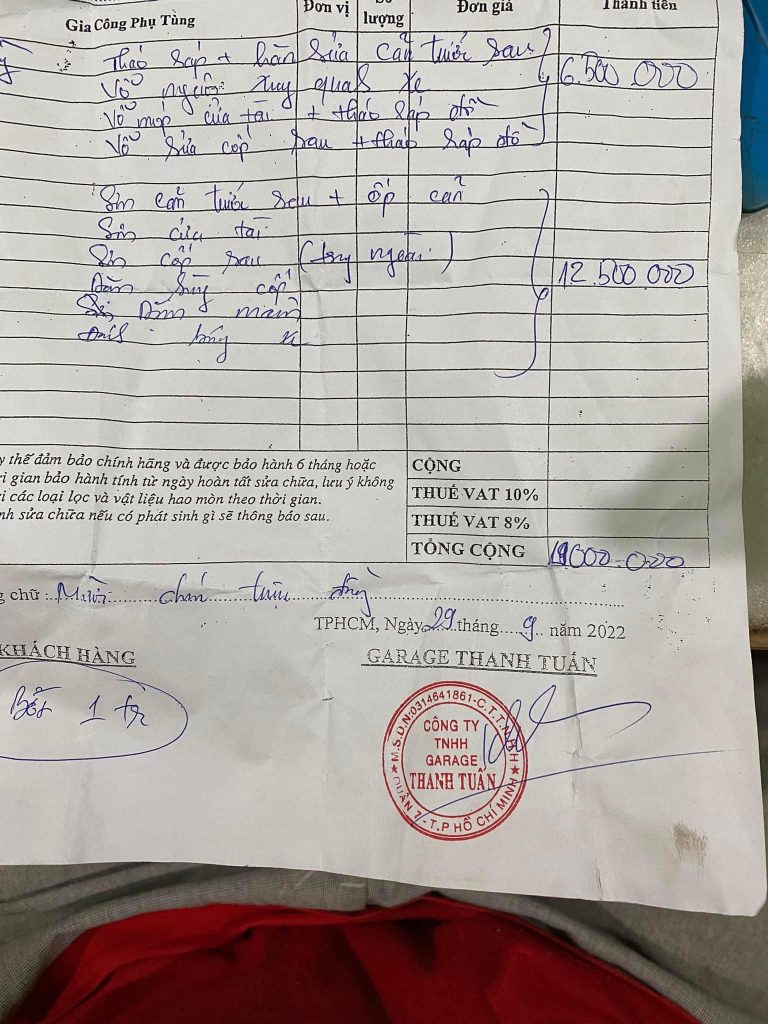 Gia Công Phụ Tùng Đơn vị Số lượng Đơn giá Thành tiền
Tháo ráp + hàn sửa cản trước sau
Vô ngàm xung quanh xe 6.500.000
Vô móp cửa tài + tháo ráp đồ
Vô sửa cốp sau + tháo ráp đồ
Sơn cản trước sau + ốp cản
Sơn cửa tài
Sơn cốp sau (trong ngoài)
Dàn cốp 12.500.000
Sơn Dàn mâm
bóng xe
y thế đảm bảo chính hãng và được bảo hành 6 tháng hoặc
i gian bảo hành tính từ ngày hoàn tất sửa chữa, lưu ý không
i các loại lọc và vật liệu hao mòn theo thời gian.
nh sửa chữa nếu có phát sinh gì sẽ thông báo sau.
CỘNG
THUẾ VAT 10%
THUẾ VAT 8%
TỔNG CỘNG 19000.000
g chữ: Mười chín triệu đồng
TPHCM, Ngày 29 tháng 9 năm 2022
KHÁCH HÀNG
GARAGE THANH TUẤN
Bớt 1 tr
M.S.D.N:0314641861-C.T.T.N.H.H
CÔNG TY
TNHH
GARAGE
THANH TUẤN
QUẬN 7-T.P HỒ CHÍ MINH